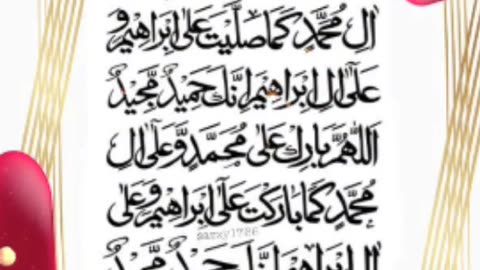 اٰلِ مُحَمَّدٍ كَمَا صَلَّيْتَ عَلٰى اِبْرَاهِيْمَ وَ
عَلٰى اٰلِ اِبْرَاهِيْمَ اِنَّكَ حَمِيْدٌ مَّجِيْدٌ
اَللّٰهُمَّ بَارِكْ عَلٰى مُحَمَّدٍ وَّعَلٰى اٰلِ
مُحَمَّدٍ كَمَا بَارَكْتَ عَلٰى اِبْرَاهِيْمَ وَعَلٰى
sarxy1786
اٰلِ اِبْرَاهِيْمَ اِنَّكَ حَمِيْدٌ مَّجِيْدٌ